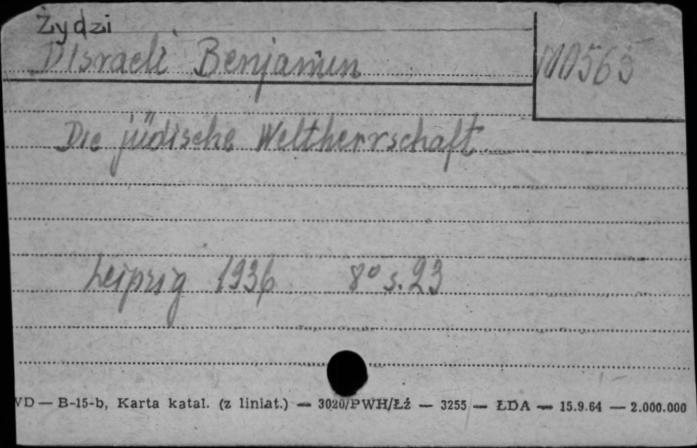 Żydzi
D'Israeli Benjamin
100565
Die jüdische Weltherrschaft
Leipzig 1936 8° s. 23
VD — B-15-b, Karta katal. (z liniat.) — 3020/PWH/Łź — 3255 — ŁDA — 15.9.64 — 2.000.000